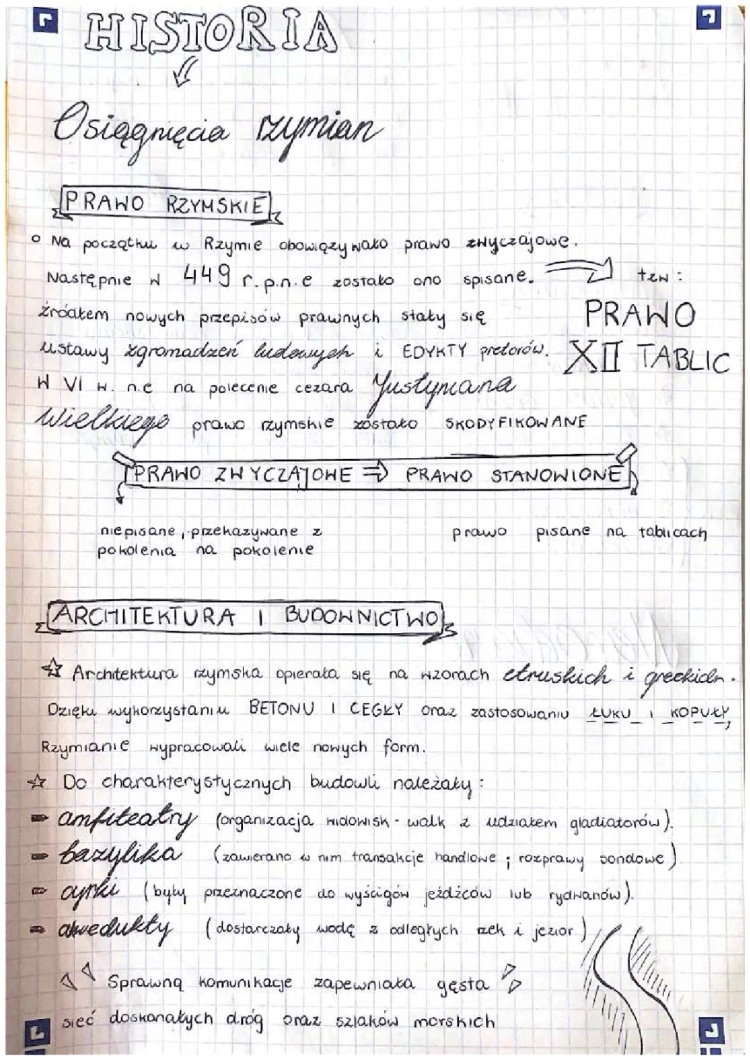 HISTORIA
Osiągnięcia rzymian
PRAWO RZYMSKIE
Na początku w Rzymie obowiązywało prawo zwyczajowe.
Następnie w 449 r.p.n.e zostało ono spisane. tzw:
PRAWO
XII TABLIC
źródłem nowych przepisów prawnych stały się
ustawy zgromadzeń ludowych i EDYKTY pretorów.
W VI w. n.e na polecenie cezara Justyniana
Wielkiego prawo rzymskie zostało SKODYFIKOWANE
PRAWO ZWYCZAJOWE ⇒ PRAWO STANOWIONE
niepisane, przekazywane z
pokolenia na pokolenie
prawo pisane na tablicach
ARCHITEKTURA I BUDOWNICTWO
☆ Architektura rzymska opierała się na wzorach etruskich i greckich.
Dzięki wykorzystaniu BETONU I CEGŁY oraz zastosowaniu ŁUKU I KOPUŁY
Rzymianie wypracowali wiele nowych form.
☆ Do charakterystycznych budowli należały:
amfiteatry (organizacja widowisk - walk z udziałem gladiatorów).
bazylika (zawierano w nim transakcje handlowe ; rozprawy sondowe)
cyrki (były przeznaczone do wyścigów jeźdźców lub rydwanów).
akwedukty (dostarczały wodę z odległych rzek i jezior)
Sprawną komunikacje zapewniała gęsta
sieć doskonałych dróg oraz szlaków morskich